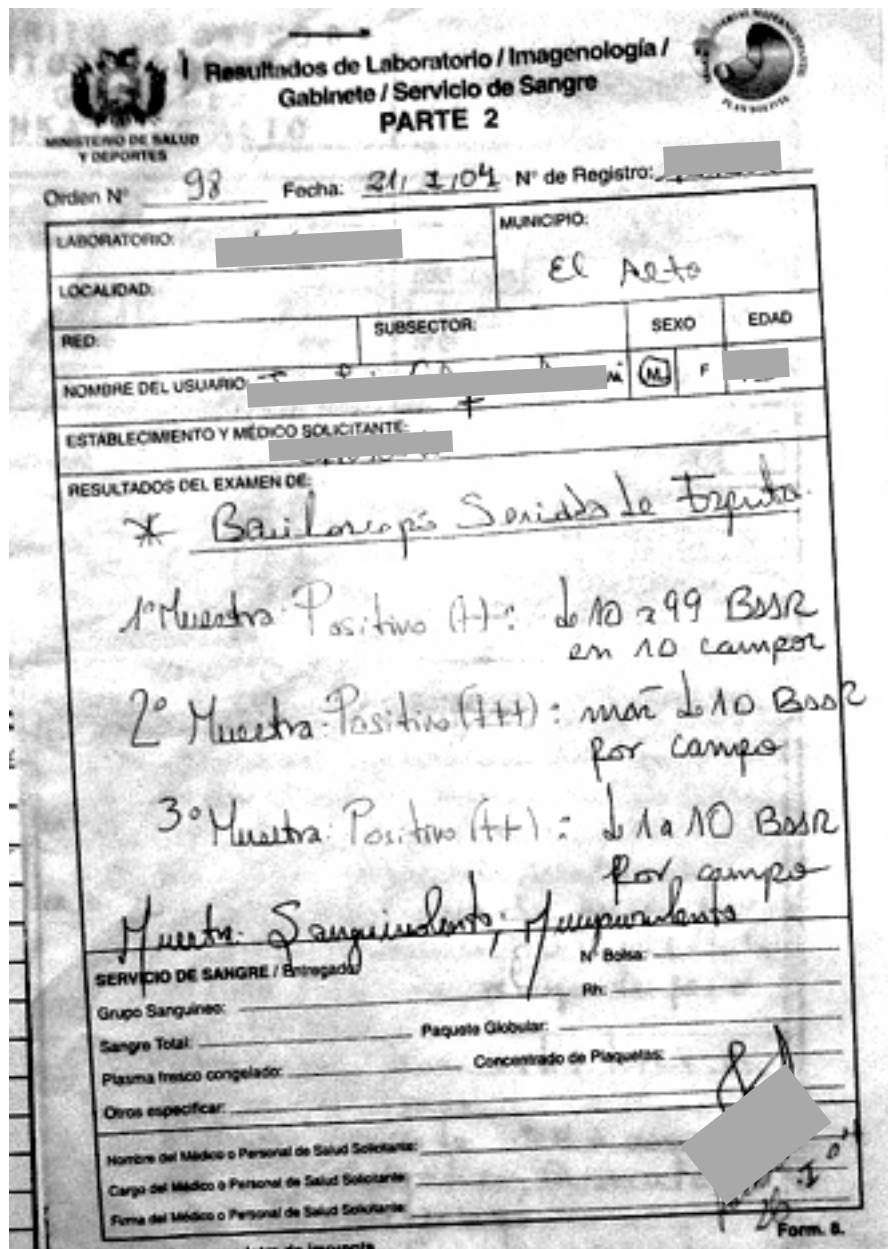 Resultados de Laboratorio / Imagenología /
Gabinete / Servicio de Sangre
PARTE 2
MINISTERIO DE SALUD
Y DEPORTES
PLAN BOLIVIA
Orden N° 98 Fecha: 21, I, 04 N° de Registro:
LABORATORIO:
MUNICIPIO:
El Alto
LOCALIDAD:
RED: SUBSECTOR: SEXO EDAD
NOMBRE DEL USUARIO: M F
ESTABLECIMIENTO Y MÉDICO SOLICITANTE:
RESULTADOS DEL EXAMEN DE:
* Baciloscopia Seriada de Esputo.
1° Muestra: Positivo (+): de 10 a 99 BAAR
en 10 campos
2° Muestra: Positivo (+++): más de 10 BAAR
por campo
3° Muestra: Positivo (++): de 1 a 10 BAAR
por campo
Muestra: Sanguinolenta; Mucopurulenta
SERVICIO DE SANGRE / Entregado: N° Bolsa:
Grupo Sanguíneo: Rh:
Sangre Total: Paquete Globular:
Plasma fresco congelado: Concentrado de Plaquetas:
Otros especificar:
Nombre del Médico o Personal de Salud Solicitante:
Cargo del Médico o Personal de Salud Solicitante:
Firma del Médico o Personal de Salud Solicitante:
Form. 8.